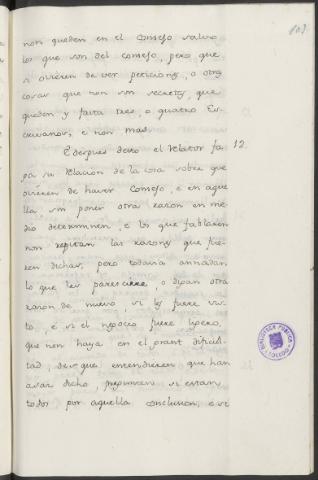 103
non queden en el Consejo salvo
los que son del consejo, pero que
si ovieren de ver peticiones, o otras
cosas que non son secretas, que
queden y fasta tres, o quatro Es-
crivanos, e non mas.
E despues desto el Relator fa- 12.
ga su Relacion de la cosa sobre que
ovieren de haver Consejo, e en aque
lla sin poner otra razon en me-
dio determinen, e los que fablaren
non repitan las razones que fue-
ren dichas, pero todavia annadan
lo que les paresciere, o digan otra
razon de nuevo si les fuere vis-
to, e si el negocio fuere ligero,
que non haya en el grant dificul-
tad, desque entendieren que han
asaz dicho pregunten si estan
todos por aquella conclusion, e si
BIBLIOTECA PUBLICA
TOLEDO